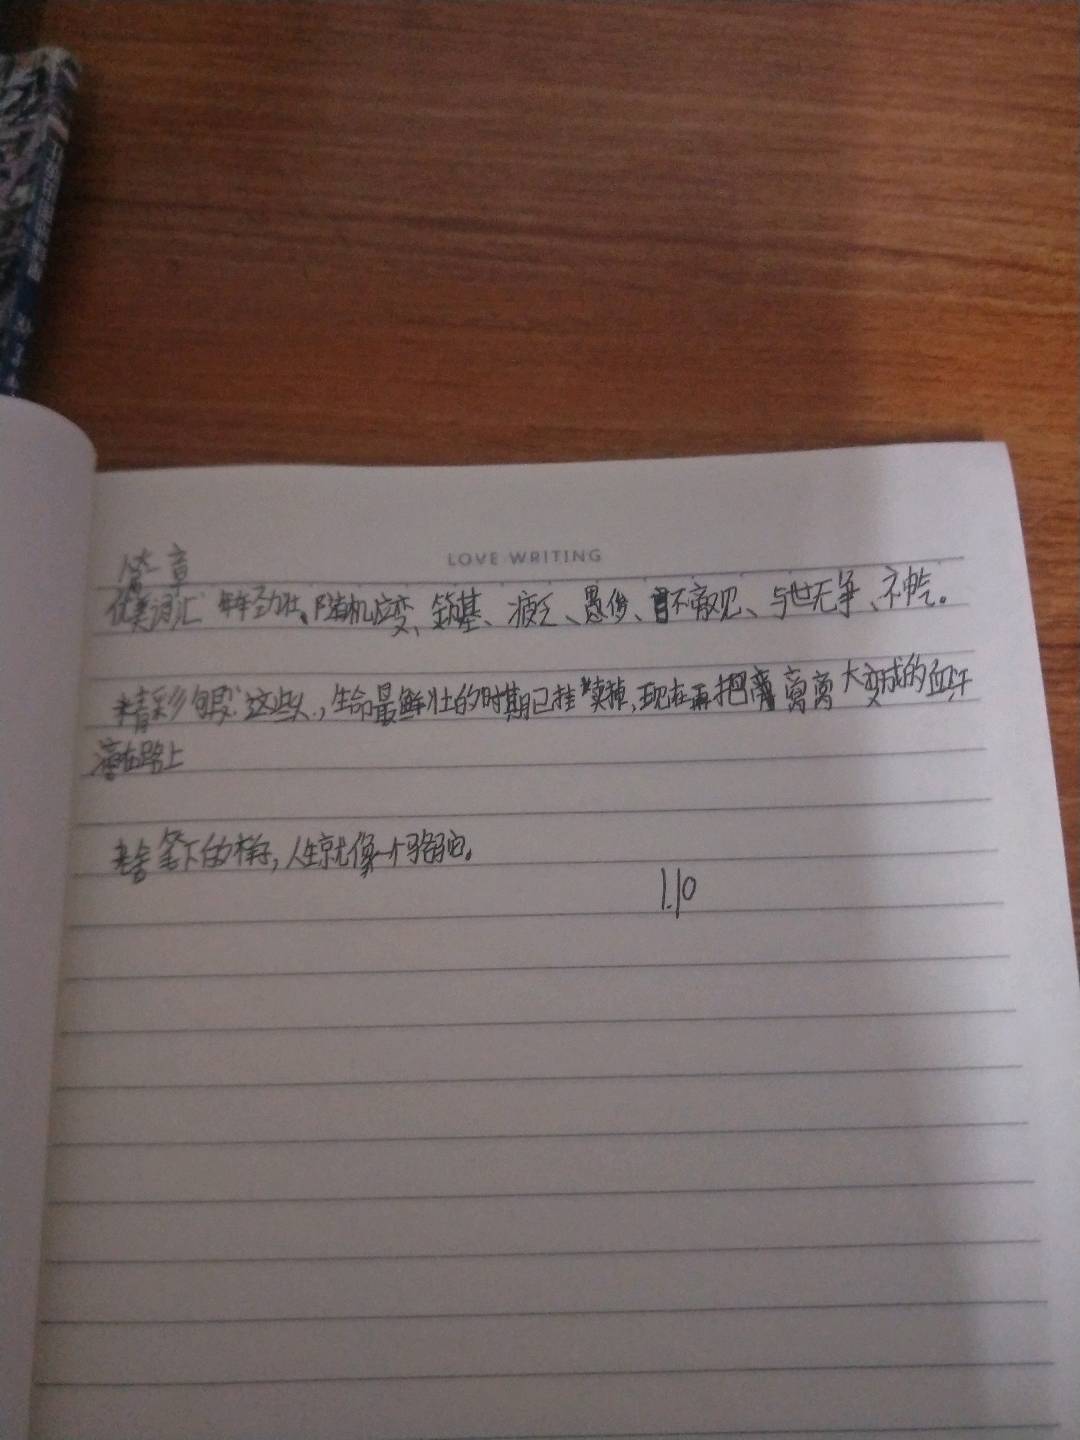 LOVE WRITING
第一章
优美词汇 年轻力壮、随机应变、筑基、疲乏、愚傻、不敢见、与世无争、神气。
精彩句段:这些人,生命最鲜壮的时期已挂卖掉,现在再把窝窝大变成的血汗
滴在路上
老舍笔下的样子,人生就像一个骆驼。
1.10